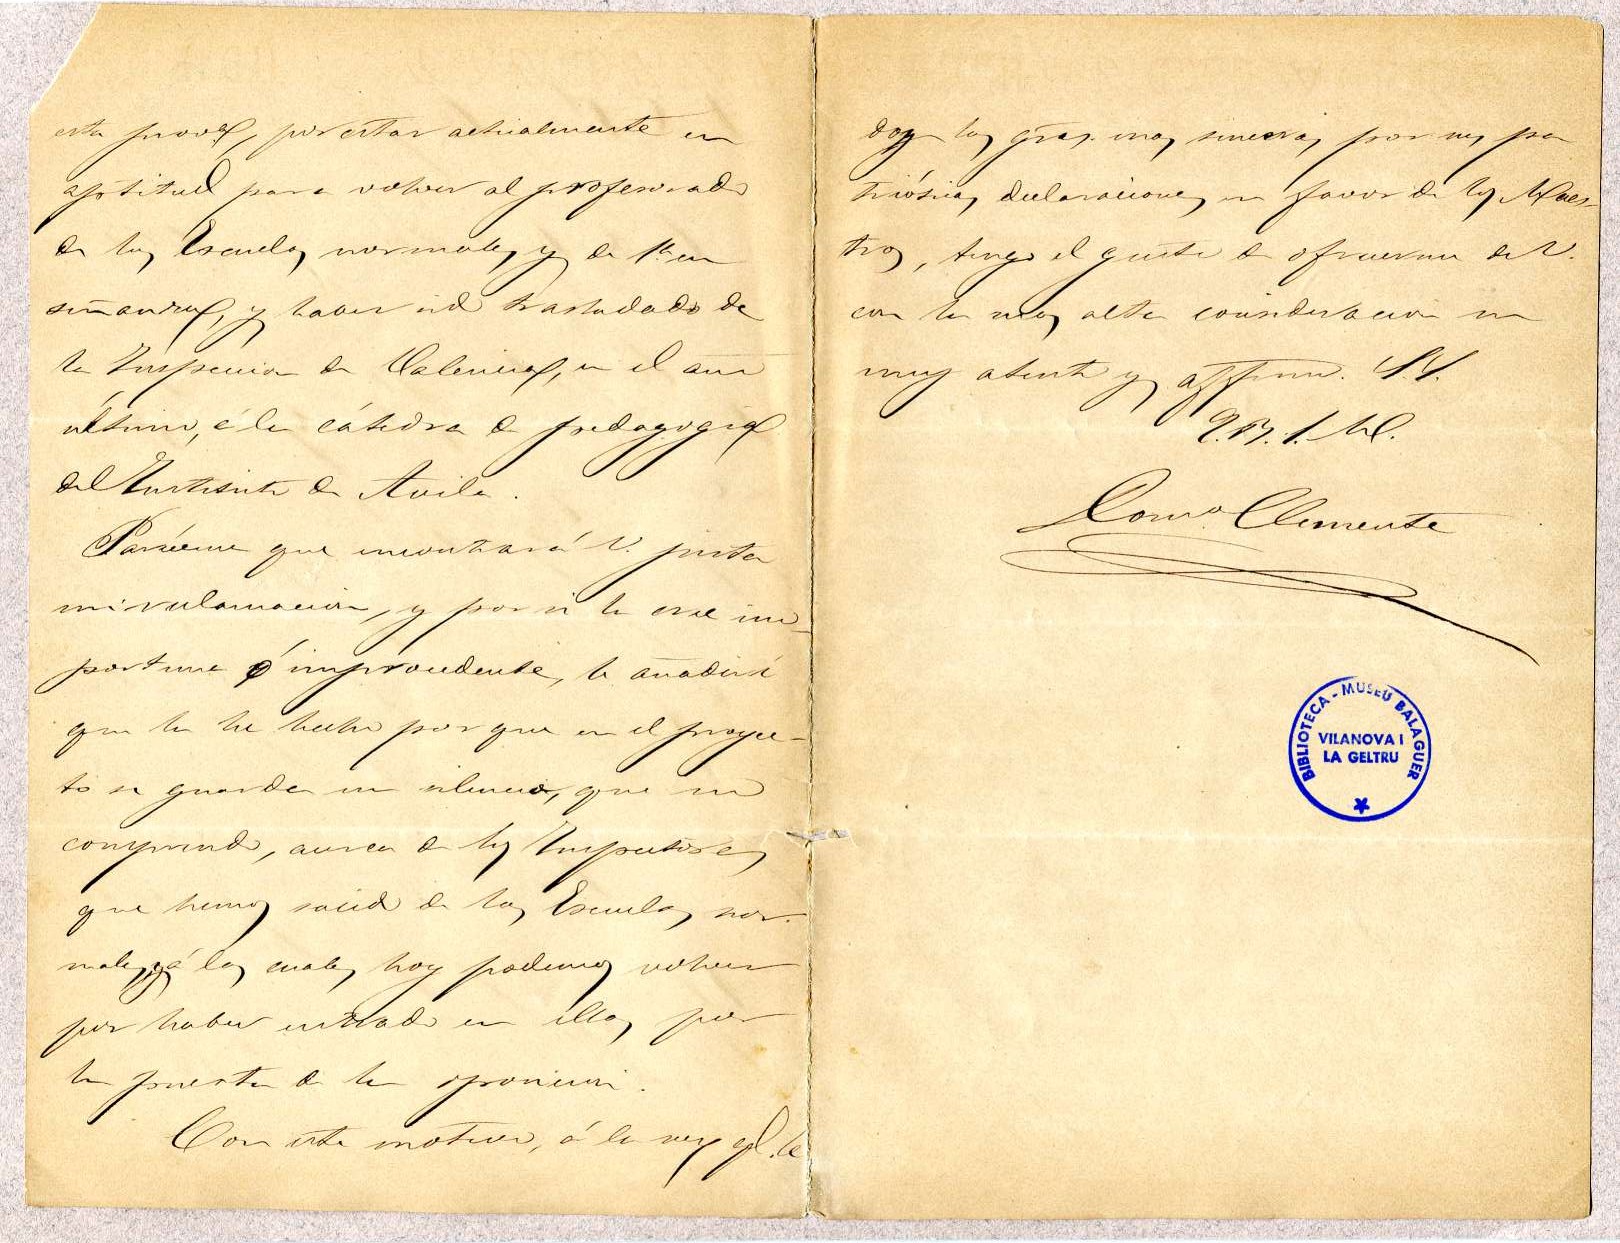 esta provª, por estar actualmente en
aptitud para volver al profesorado
de las Escuelas normales y de 1ª en
señanza, y haber sido trasladado de
la Inspeccion de Valencia, en el año
último, á la cátedra de pedagogia
del Instituto de Avila.
Paréceme que encontrará V. justa
mi reclamacion, y por si la cree ino-
portuna ó improcedente, le añadiré
que la he hecho porque en el proyec-
to se guarda un silencio, que no
comprendo, acerca de los Inspectores
que hemos salido de las Escuelas nor-
males, y á las cuales hoy podemos volver
por haber entrado en ellas por
la puerta de la oposicion.
Con este motivo, á la vez que le
doy las gras. mas sinceras por sus pa
trióticas declaraciones en favor de los Maes-
tros, tengo el gusto de ofrecerme de V.
con la mas alta consideracion su
muy atento y affmo. S.S.
Q.B.S.M.
Clemente
BIBLIOTECA - MUSEU BALAGUER
VILANOVA I
LA GELTRU